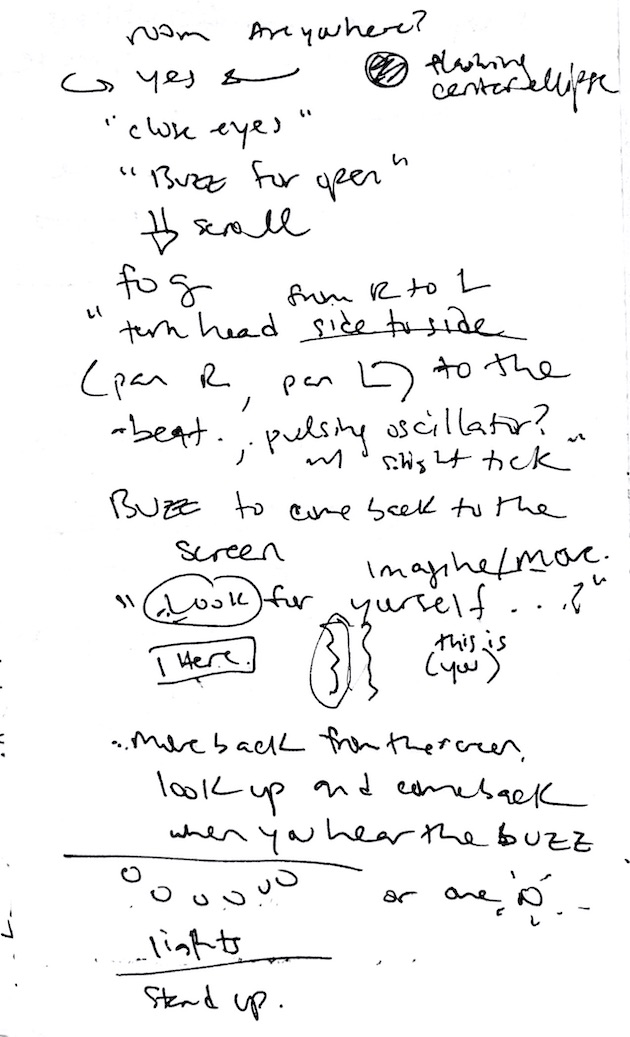 room Anywhere?
yes
flashing
center ellipse
"close eyes"
"Buzz for open"
scroll
fog
from R to L
"turn head side to side
(pan R, pan L) to the
beat.., pulsing oscillator?
w/ slight tick"
Buzz to come back to the
screen
imagine/move.
"Look for yourself ...?"
I Here.
this is
(you)
..move back from the screen,
look up and come back
when you hear the buzz
or one
lights
Stand up.